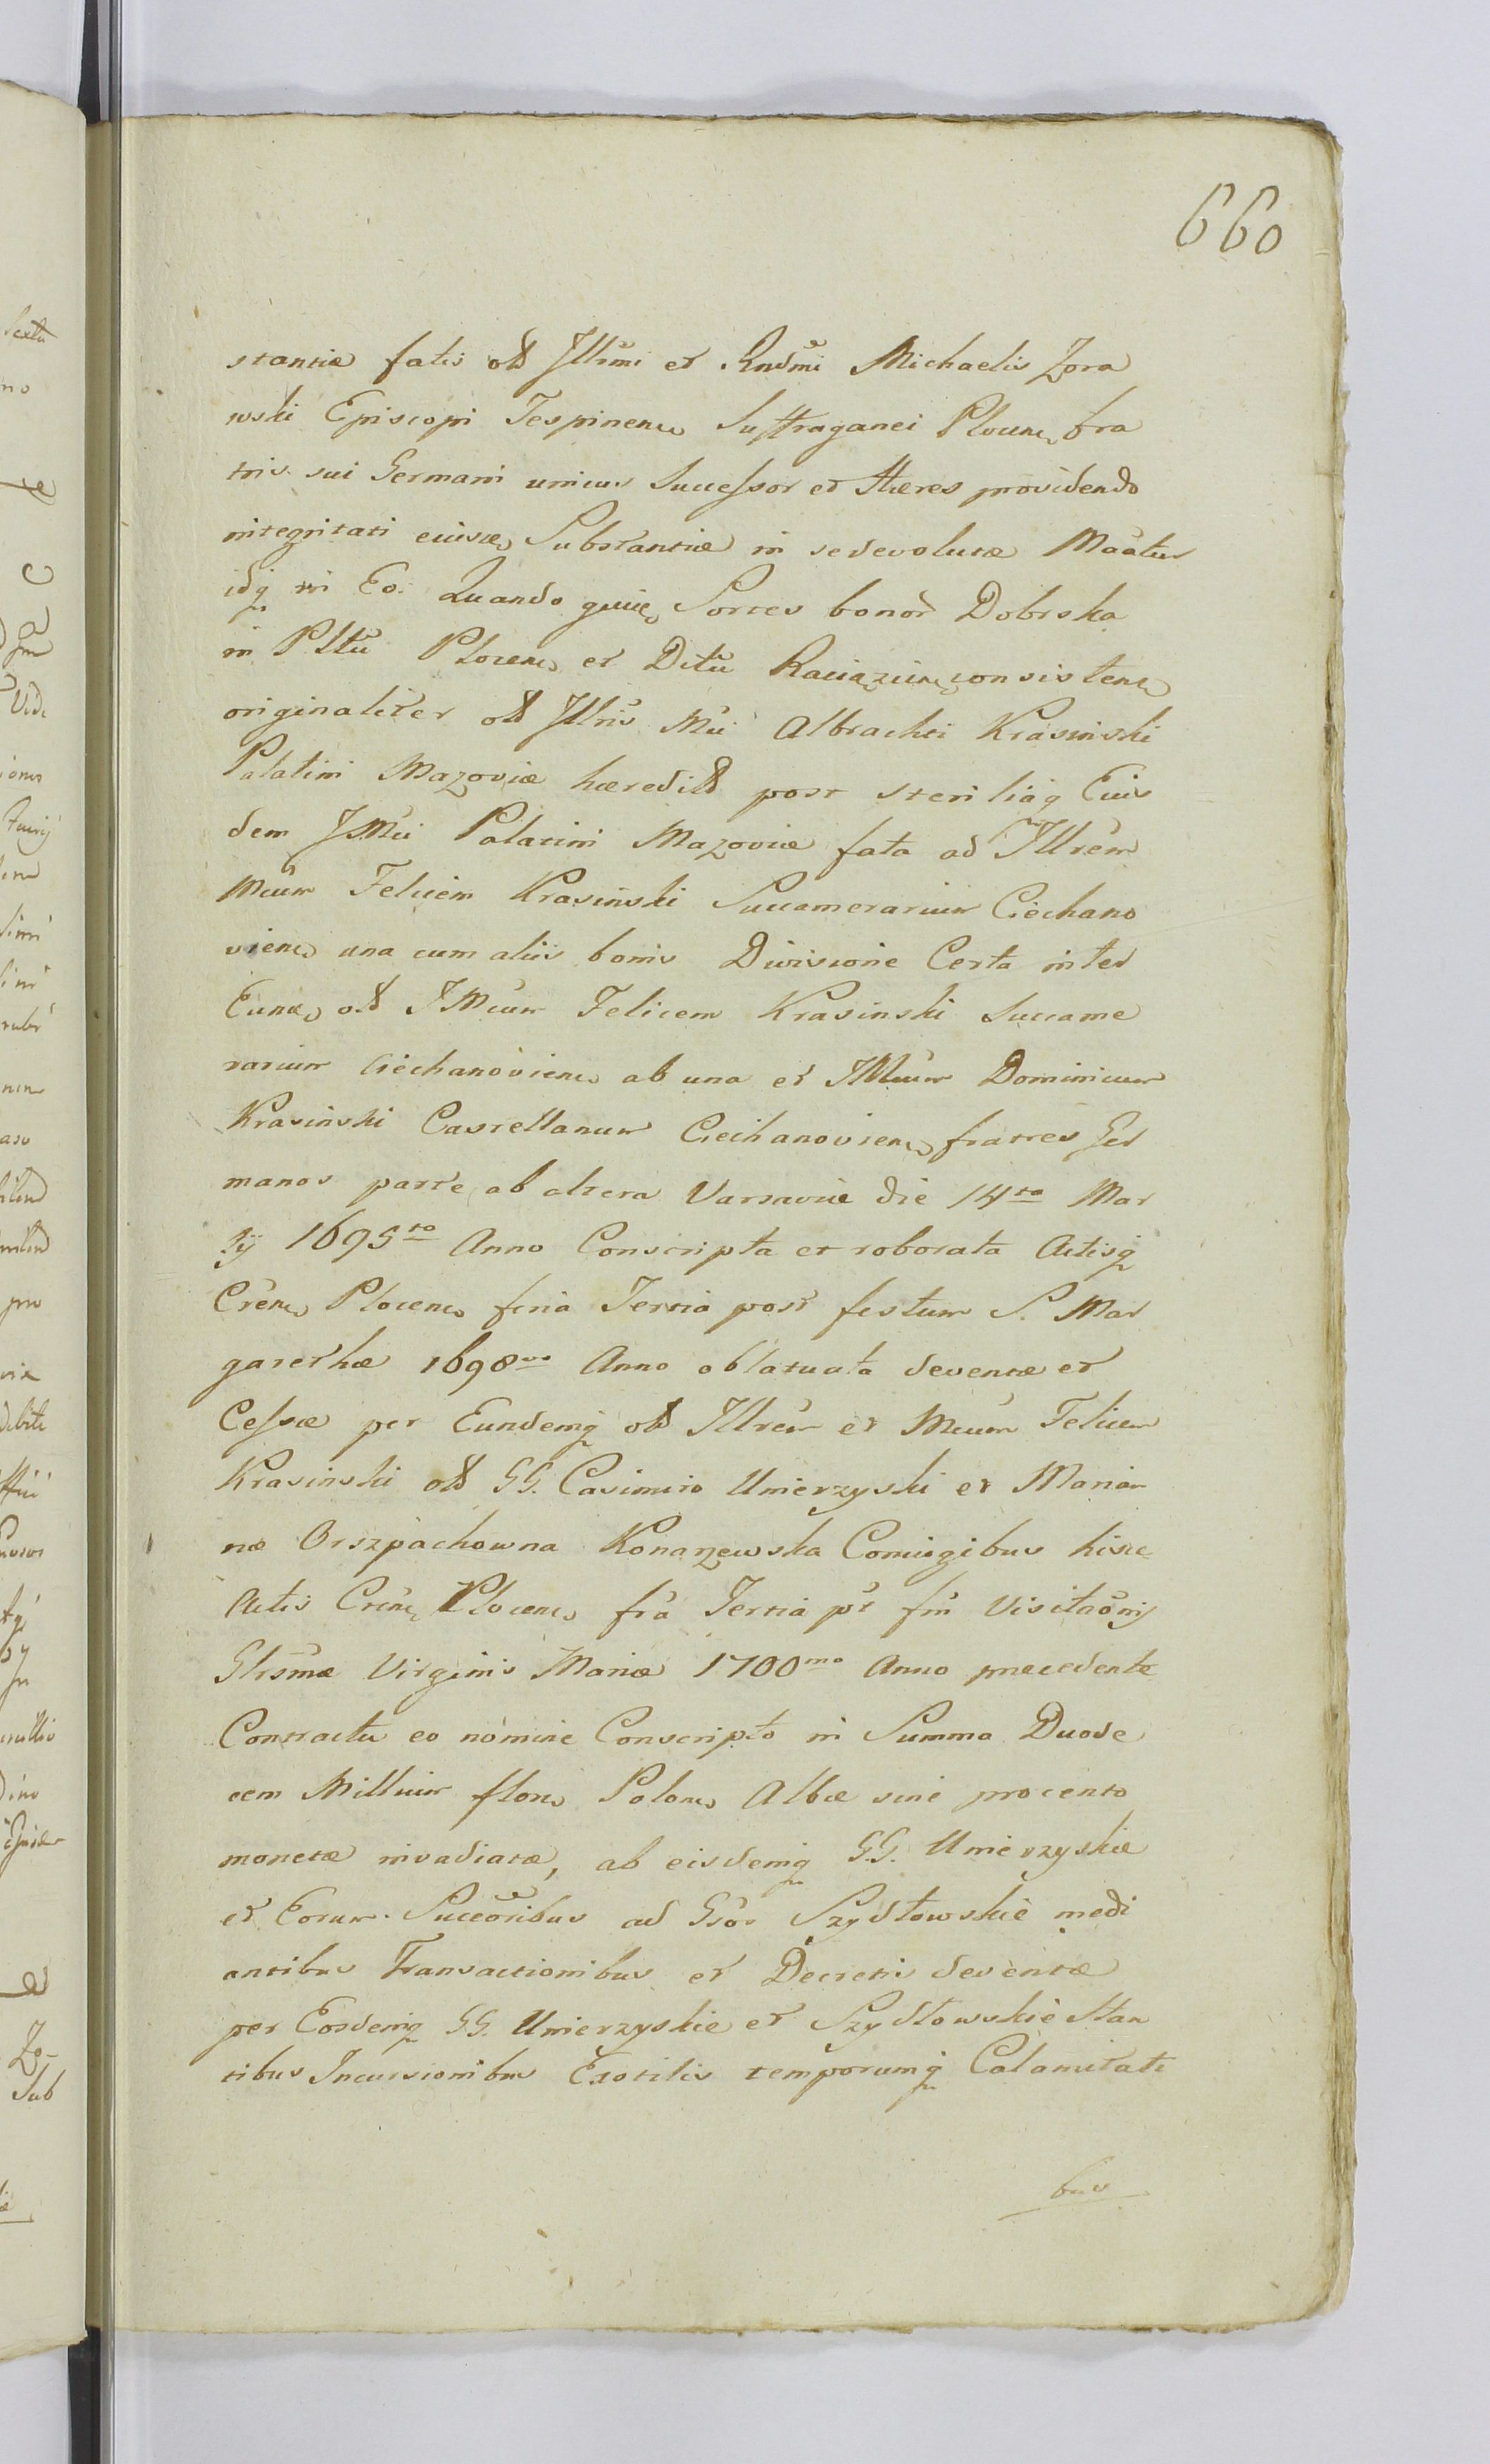 660
stantiæ fatis olđ Jllr̃mi et Rnđmi Michaelis Zora
wski Episcopi Tespinen̄ Suffraganei Plocen̄ fra
tris sui Germani unicus Successor et Hæres providendo
integritati eius Substantiæ in se devolutæ
idq̃ in Eo. Quando quid Sortes bonor̃ Dobrska
in Pltũ Plocen̄ et Ditũ Raciąźin̄ consisten̄
originaliter olđ Jllr̃is Mci Albrachti Krasinski
Palatini Mazoviæ hæredit̃ post sterilia q̃ Eius
dem JMci Palatini Mazoviæ fata ad Jllrẽm
Mcũm Felicem Krasinski Succamerarium Ciechano
vien̄ una cum aliis bonis Divisione Certa inter
Eund̃ olđ JMcum Felicem Krasinski Succame
rarium Ciechanovien̄ ab una et JMcum Dominicum
Krasinski Castellanum Ciechanovien̄ fratres Ger
manos parte ab altera Varsaviæ die 14ta Mar
tij 1695to Anno Conscripta et roborata Actisq̃
Crẽn̄ Plocen̄ feria Tertia post festum S. Mar
garethæ 1698vo Anno oblatuata deventæ et
Cessæ per Eundemq̃ olđ Jllrẽm et Mcum Felicem
Krasinski olđ GG. Casimiro Umierzyski et Marian
næ Orszpachowna Konarzewska Coniugibus hisce
Actis Crẽn̄ Plocen̄ frã Tertia pt̃ fm̃ Visitaõnij
Glrs̃mæ Virginis Mariæ 1700mo Anno præcedente
Contractu eo nomine Conscripto in Summa Duode
cem Millium flon̄ Polon̄ Albæ sine procento
monetæ invadiatæ, ab eisdemq̃ G.G. Umierzyskie
et Eorum Succeõribus ad Gsõs Szydłowskie medi
antibus Transactionibus et Decretis deventæ
per Eosdemq̃ GG. Umierzyskie et Szydłowskie stan
tibus Incursionibus Exotilis temporumq̃ Calamitati
bus